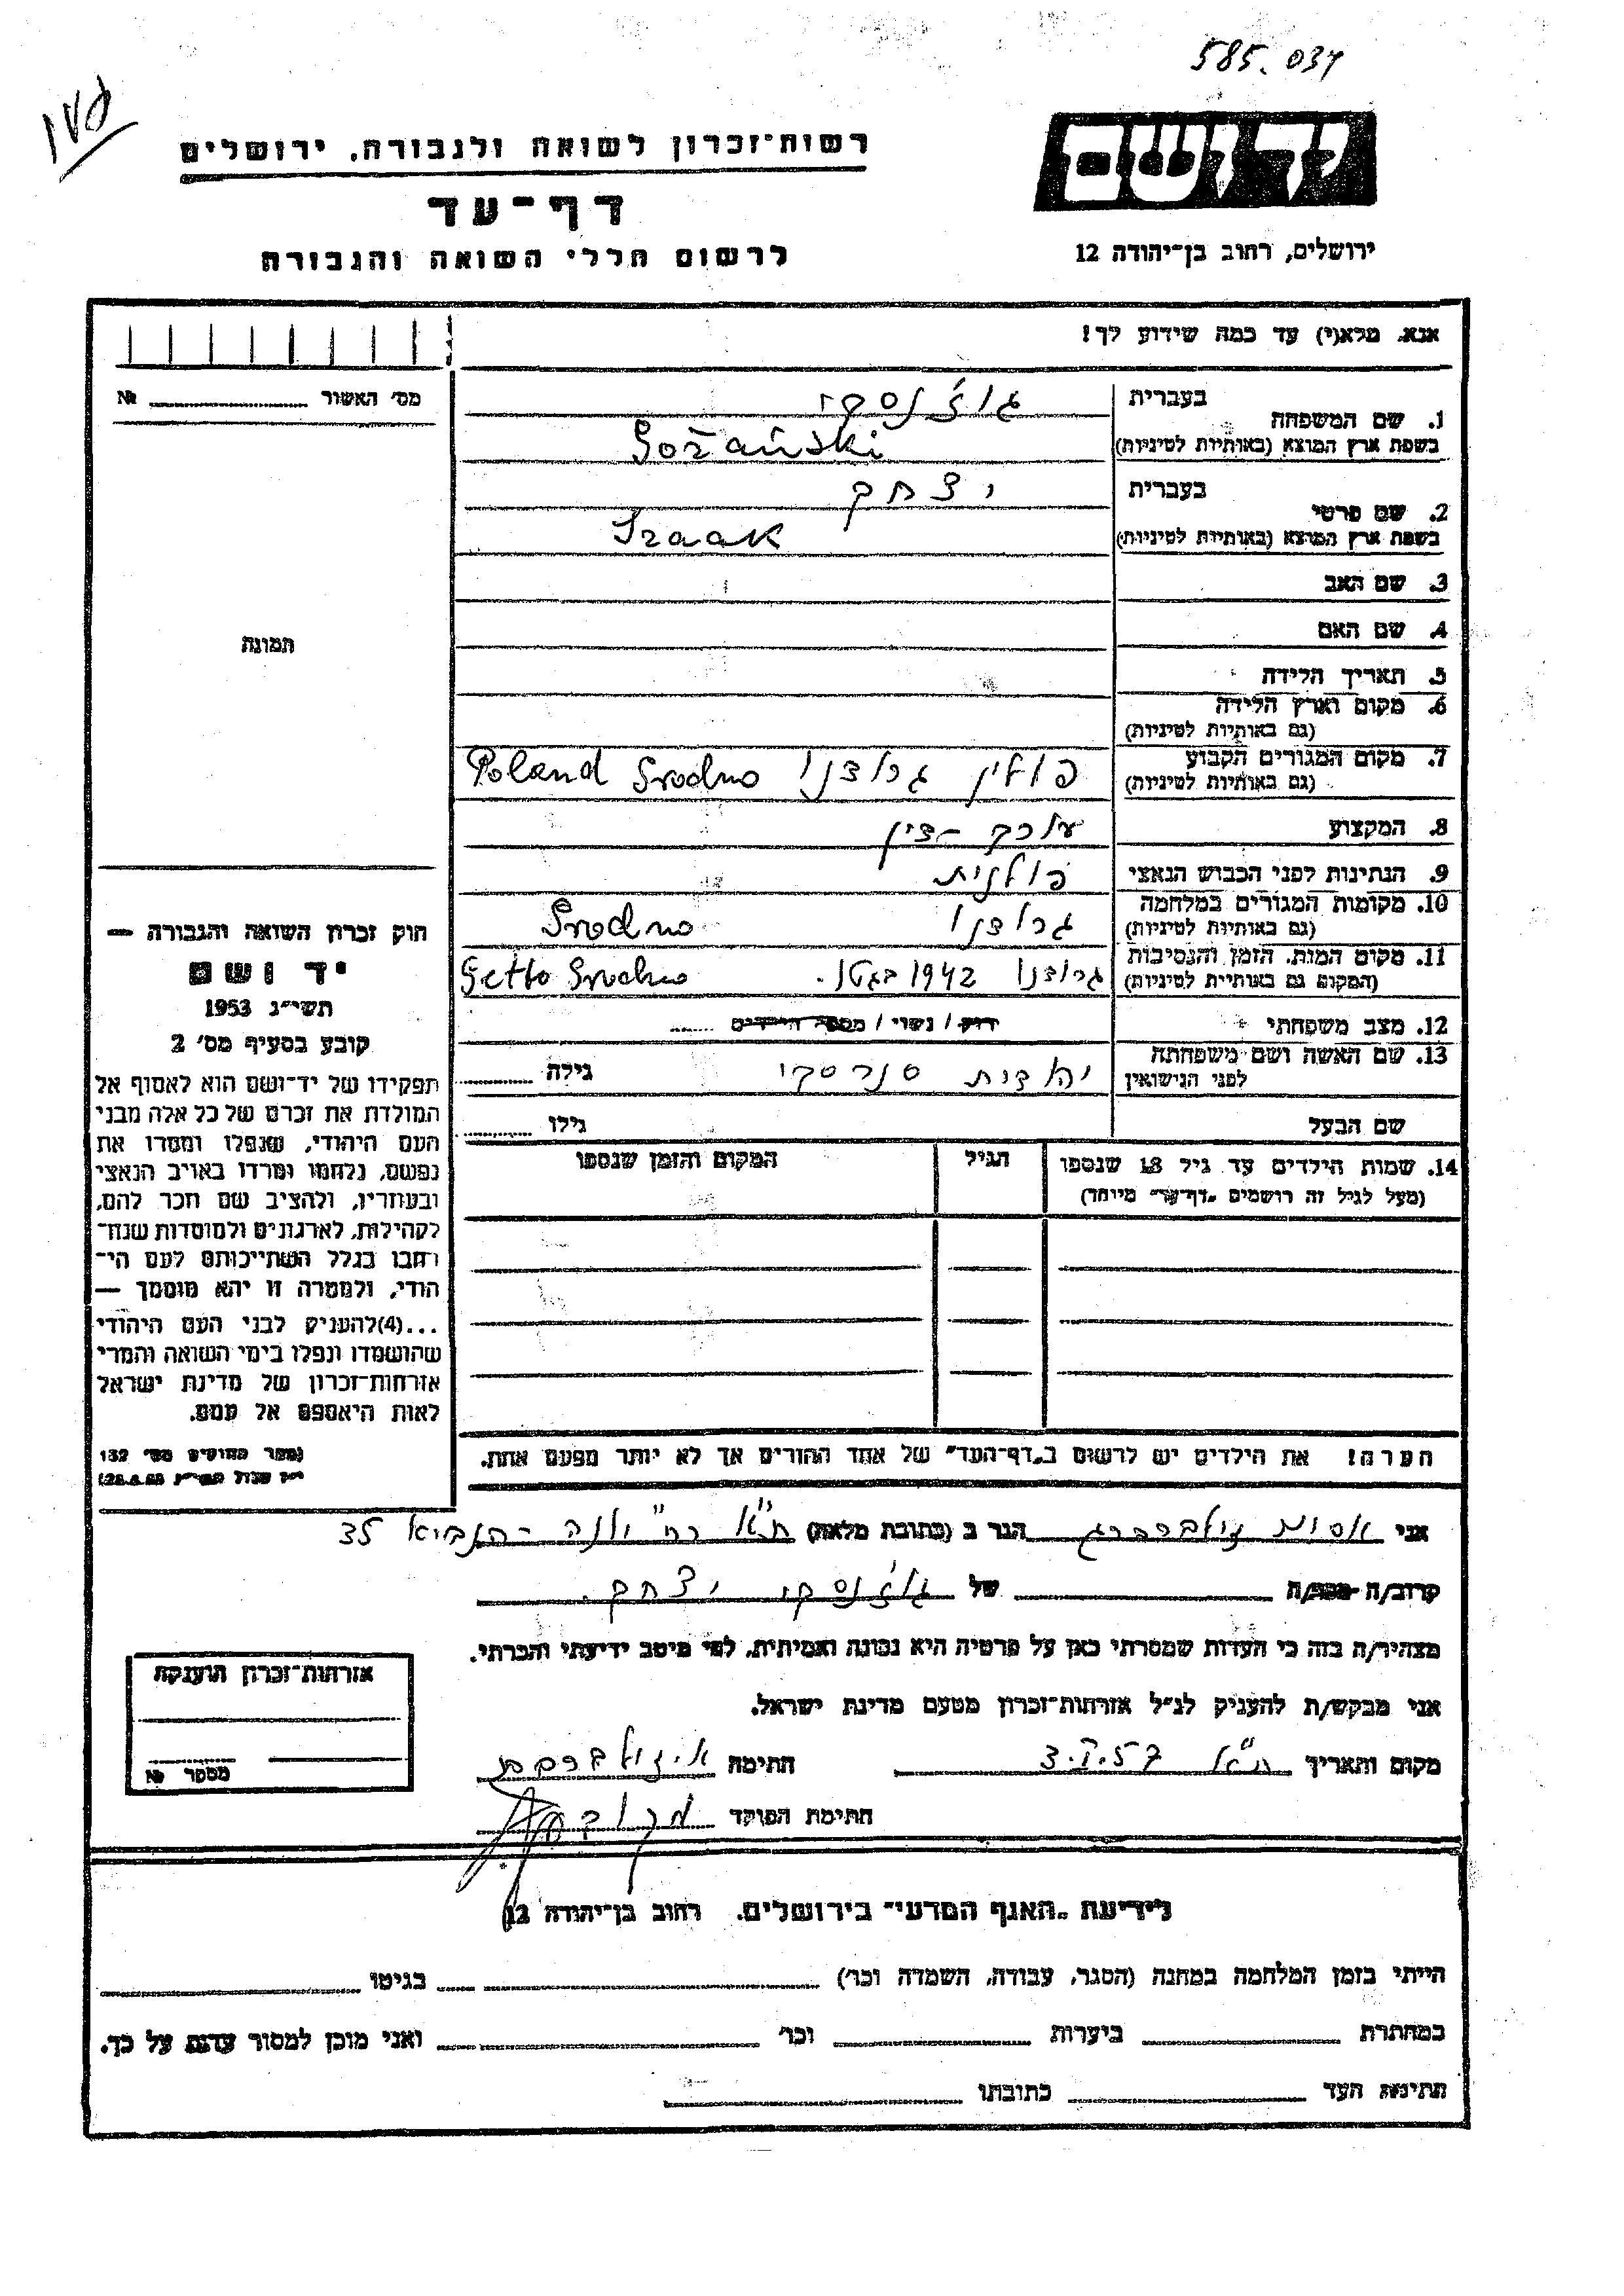 585.034
רשות־זכרון לשואה ולגבורה, ירושלים
דף־עד
לרשום חללי השואה והגבורה
יד ושם
ירושלים, רחוב בן־יהודה 12
אנא, מלא(י) עד כמה שידוע לך!
מס׳ האשור №
1. שם המשפחה
בעברית גוז'נסקי
בשפת ארץ המוצא (באותיות לטיניות) Gożański
2. שם פרטי
בעברית יצחק
בשפת ארץ המוצא (באותיות לטיניות) Izaak
3. שם האב
4. שם האם
תמונה
5. תאריך הלידה
6. מקום וארץ הלידה
(גם באותיות לטיניות)
7. מקום המגורים הקבוע
(גם באותיות לטיניות) פולין גרודנו Grodno Poland
8. המקצוע עורך-דין
9. הנתינות לפני הכבוש הנאצי פולנית
10. מקומות המגורים במלחמה
(גם באותיות לטיניות) גרודנו Grodno
11. מקום המות, הזמן והנסיבות
(המקום גם באותיות לטיניות) גרודנו 1942 בגטו. Getto Grodno
12. מצב משפחתי רווק / נשוי / מספר הילדים
13. שם האשה ושם משפחתה
לפני הנישואין יהודית גילה
שם הבעל גילו
14. שמות הילדים עד גיל 18 שנספו
(מעל לגיל זה רושמים „דף־עד״ מיוחד)
הגיל
המקום והזמן שנספו
חוק זכרון השואה והגבורה —
יד ושם
תשי״ג 1953
קובע בסעיף מס׳ 2
תפקידו של יד־ושם הוא לאסוף אל
המולדת את זכרם של כל אלה מבני
העם היהודי, שנפלו ומסרו את
נפשם, נלחמו ומרדו באויב הנאצי
ובעוזריו, ולהציב שם וזכר להם,
לקהילות, לארגונים ולמוסדות שנח־
רבו בגלל השתייכותם לעם הי־
הודי, ולמטרה זו יהא מוסמך —
...(4)להעניק לבני העם היהודי
שהושמדו ונפלו בימי השואה והמרי
אזרחות־זכרון של מדינת ישראל
לאות היאספם אל עמם.
(ספר החוקים מס׳ 132
הערה! את הילדים יש לרשום ב„דף־העד״ של אחד ההורים אך לא יותר מפעם אחת.
אני אסתר זילברברג הגר ב (כתובת מלאה) ת"א רח' יונה -הנביא 35
קרוב/ה מכר/ה של גוז'נסקי יצחק.
מצהיר/ה בזה כי העדות שמסרתי כאן על פרטיה היא נכונה ואמיתית, לפי מיטב ידיעתי והכרתי.
אני מבקש/ת להעניק לנ״ל אזרחות־זכרון מטעם מדינת ישראל.
מקום ותאריך ת"א 3.I.57 חתימה
חתימת הפוקד
אזרחות־זכרון הוענקה
מספר №
לידיעת „האגף המדעי״ בירושלים, רחוב בן־יהודה 12
הייתי בזמן המלחמה במחנה (הסגר, עבודה, השמדה וכו׳) בגיטו
במחתרת ביערות וכו׳ ואני מוכן למסור עדות על כך.
חתימת העד כתובתו